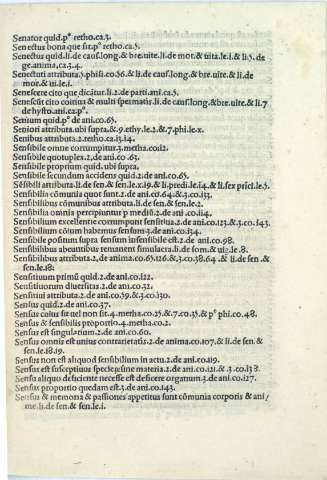 Senator quid.pº retho.ca.3.
Senectus bona que sit.pº retho.ca.5.
Senectus quid.li.de cauſ.long.& breuite.li.de mor.& uita.le.i.& li.5.de
ge.anima.ca.3.4.
Senectuti attributa.5.phiſi.co.36.& li.de cauſ.long.& bre.uite.& li.de
mor.& ui.le.i.
Senescere cito que dicātur.li.2.de parti.ani.ca.5.
Seneſcūt cito coitiua & multi spermatis.li.de cauſ.long.& bre.uite.& li.7
de hyſto.ani.ca.pº.
Senium quid.pº de ani.co.65.
Seniori attributa.ubi supra.& 9.ethy.le.2.& 7.phi.le.x.
Senibus attributa.2.retho.ca.13.14.
Sensibile omne corrumpitur.3.metha.co.12.
Sensibile quotuplex.2.de ani.co.63.
Sensibile proprium quid.ubi supra.
Sensibile secundum accidens quid.2.de ani.co.65.
Sēsibili attributa.li.de ſen.& ſen.le.x.19.& li.predi.le.14.& li.ſex prici.le.5.
Sensibilia cōmunia quot sunt.2.de ani.co.64.& 3.co.133.
Sensibilibus cōmunibus attributa.li.de ſen.& ſen.le.2.
Sensibilia omnia percipiuntur p mediū.2.de ani.co.114.
Sensibilium excellentie corrumpunt sensitiua.2.de ani.co.123.& 3.co.143.
Sensibilium cōium habemus sensum.3.de ani.co.134.
Sensibile positum supra sensum insensibile est.2.de ani.co.98.
Sensibilibus abeuntibus remanent simulacra.li.de ſom.& uig.le.8.
Sensibilibus attributa.2.de anima.co.65.126.& 3.co.38.64.& li.de ſen.&
ſen.le.18.
Sensitiuum primū quid.2.de ani.co.122.
Sensitiuorum diuersitas.2.de ani.co.32.
Sensitiui attributa.2.de ani.co.59.& 3.co.130.
Sensus quid.2.de ani.co.37.
Sensus cuius sit uel non sit.4.metha.co.25.& 7.co.35.& pº phi.co.48.
Sensus & sensibilis proportio.4.metha.co.2.
Sensus est singularium.2.de ani.co.60.
Sensus omnis est unius contrarietatis.2.de anima.co.107.& li.de ſen.&
ſen.le.18.19.
Sensus non est aliquod sensibilium in actu.2.de ani.co.119.
Sensus est susceptiuus specierum sine materia.2.de ani.co.121.& 3.co.138.
Sensu aliquo deficiente necesse est deficere organum.3.de ani.co.127.
Sensus proportio quedam est.3.de ani.co.143.
Sensus & memoria & passiones appetitus sunt cōmunia corporis & ani/
me.li.de ſen.& ſen.le.i.